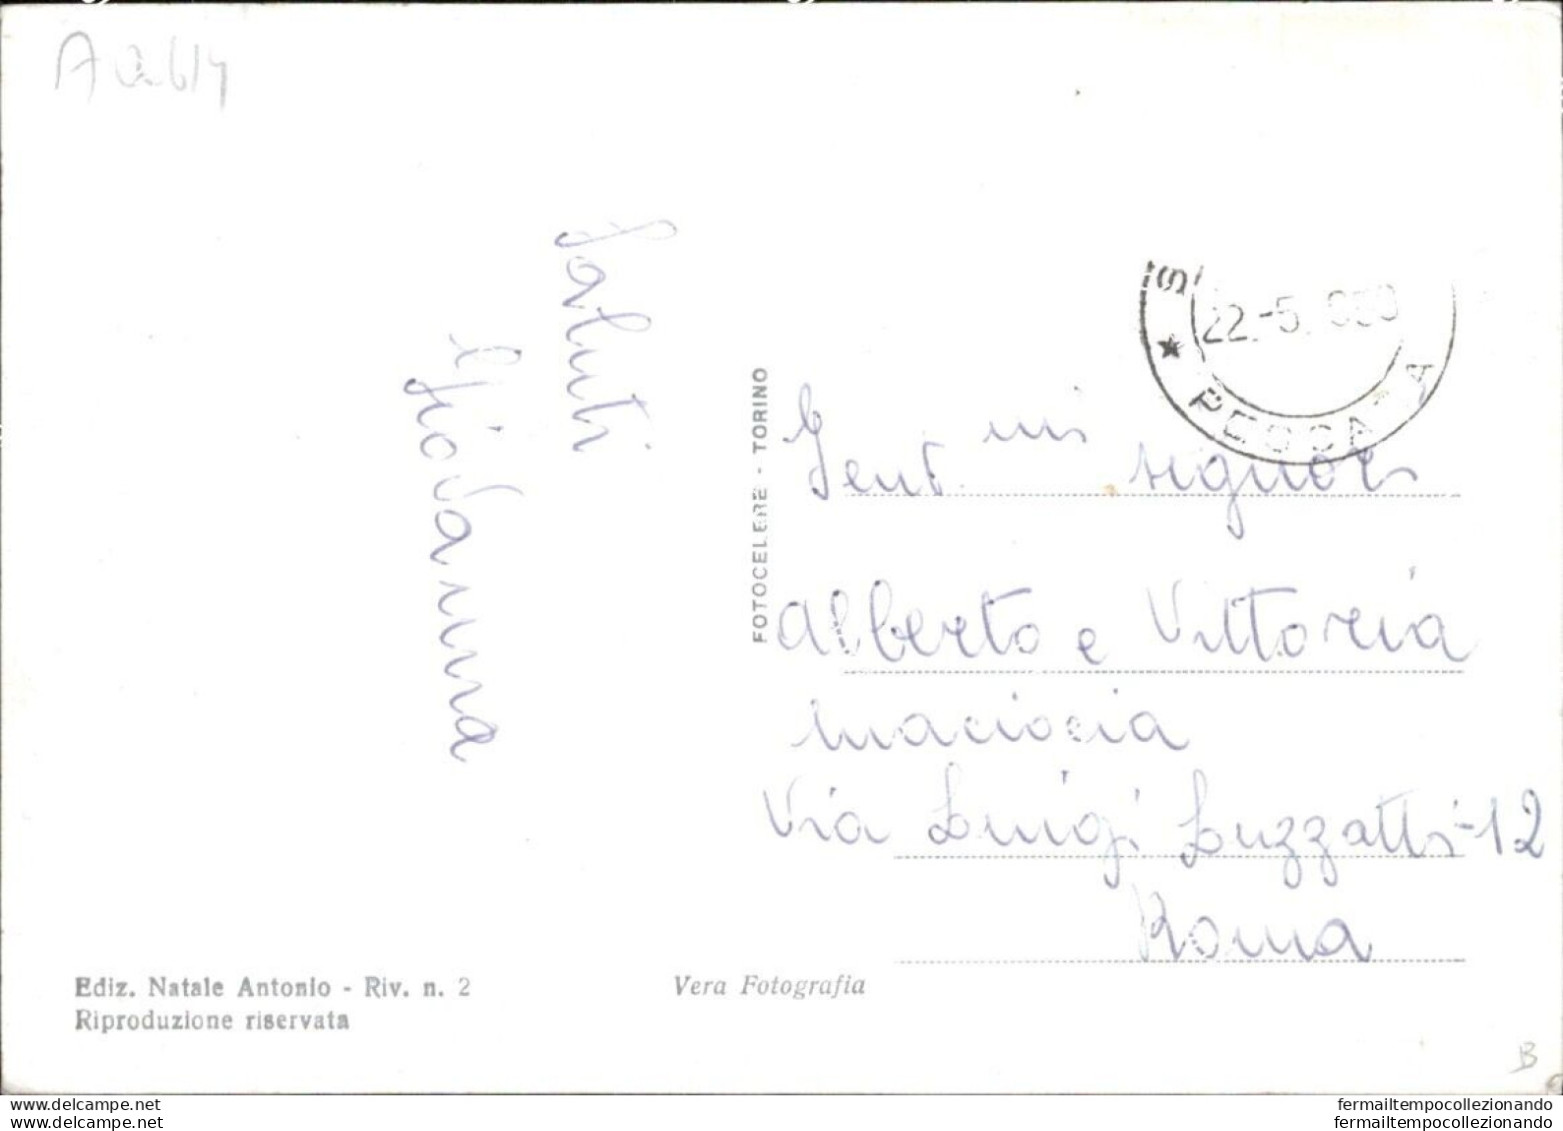 Saluti
Giovanna
FOTOCELERE - TORINO
22.-5.
Gent.mi signori
Alberto e Vittoria
Maciocia
Via Luigi Luzzatti-12
Roma
Ediz. Natale Antonio - Riv. n. 2
Riproduzione riservata
Vera Fotografia
B
www.delcampe.net
www.delcampe.net
fermailtempocollezionando
fermailtempocollezionando